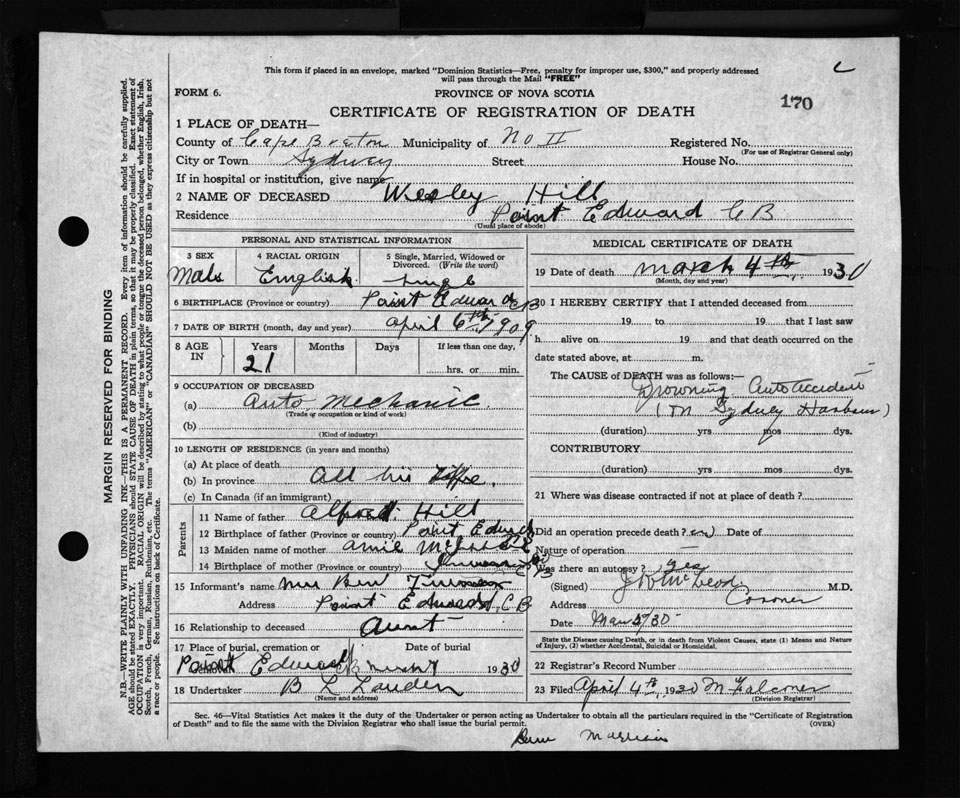 This form if placed in an envelope, marked "Dominion Statistics—Free, penalty for improper use, $300," and properly addressed
will pass through the Mail "FREE"
FORM 6.
PROVINCE OF NOVA SCOTIA
170
CERTIFICATE OF REGISTRATION OF DEATH
1 PLACE OF DEATH—
County of Cape Breton Municipality of No II Registered No.
(For use of Registrar General only)
City or Town Sydney Street House No.
If in hospital or institution, give name
2 NAME OF DECEASED Wesley Hill
Residence Point Edward C B
(Usual place of abode)
PERSONAL AND STATISTICAL INFORMATION
3 SEX 4 RACIAL ORIGIN 5 Single, Married, Widowed or Divorced. (Write the word)
Male English Single
6 BIRTHPLACE (Province or country) Point Edward CB
7 DATE OF BIRTH (month, day and year) April 6th 1909
8 AGE IN Years Months Days If less than one day,
21 hrs. or min.
9 OCCUPATION OF DECEASED
(a) Auto Mechanic
(Trade or occupation or kind of work)
(b)
(Kind of industry)
10 LENGTH OF RESIDENCE (in years and months)
(a) At place of death
(b) In province All his Life.
(c) In Canada (if an immigrant)
Parents
11 Name of father Alfred Hill
12 Birthplace of father (Province or country) Point Edward
13 Maiden name of mother
14 Birthplace of mother (Province or country)
15 Informant's name Mrs Ben
Address Point Edward, C B
16 Relationship to deceased Aunt
17 Place of burial, cremation or removal Date of burial
Point Edward CB 1930
18 Undertaker B L
(Name and address)
MEDICAL CERTIFICATE OF DEATH
19 Date of death March 4th, 1930
(Month, day and year)
20 I HEREBY CERTIFY that I attended deceased from
19 to 19 that I last saw
h alive on 19 and that death occurred on the
date stated above, at m.
The CAUSE of DEATH was as follows:—
Drowning Auto accident
(In Sydney Harbour)
(duration) yrs mos dys.
CONTRIBUTORY
(duration) yrs mos dys.
21 Where was disease contracted if not at place of death?
Did an operation precede death? no Date of
Nature of operation
Was there an autopsy? Yes
(Signed) McLeod M.D.
Address Coroner
Date
State the Disease causing Death, or in death from Violent Causes, state (1) Means and Nature
of Injury, (2) whether Accidental, Suicidal or Homicidal.
22 Registrar's Record Number
23 Filed April 4th, 1930 M Falconer
(Division Registrar)
Sec. 46—Vital Statistics Act makes it the duty of the Undertaker or person acting as Undertaker to obtain all the particulars required in the "Certificate of Registration
of Death" and to file the same with the Division Registrar who shall issue the burial permit.
(OVER)
MARGIN RESERVED FOR BINDING
N.B.—WRITE PLAINLY WITH UNFADING INK—THIS IS A PERMANENT RECORD. Every item of information should be carefully supplied.
AGE should be stated EXACTLY. PHYSICIANS should STATE CAUSE OF DEATH in plain terms, so that it may be properly classified. Exact statement of
OCCUPATION is very important. RACIAL ORIGIN will be described by stating to what people or tongue the deceased person belonged, whether English, Irish,
Scotch, French, German, Russian, Ruthenian, etc. The terms "AMERICAN" or "CANADIAN" SHOULD NOT BE USED as they express citizenship but not
a race or people. See instructions on back of Certificate.